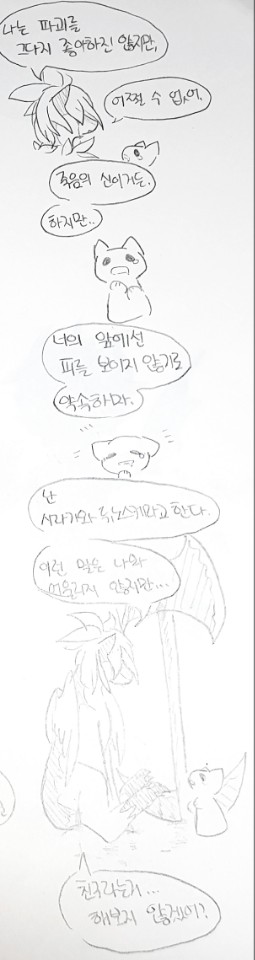 나는 파괴를
그다지 좋아하진 않지만,
어쩔 수 없어.
죽음의 신이거든.
하지만..
너의 앞에선
피를 보이지 않기로
약속하마.
난
시라가와 류노스케라고 한다.
이런 일은 나와
어울리지 않지만...
친구라는거...
해보지 않겠어?